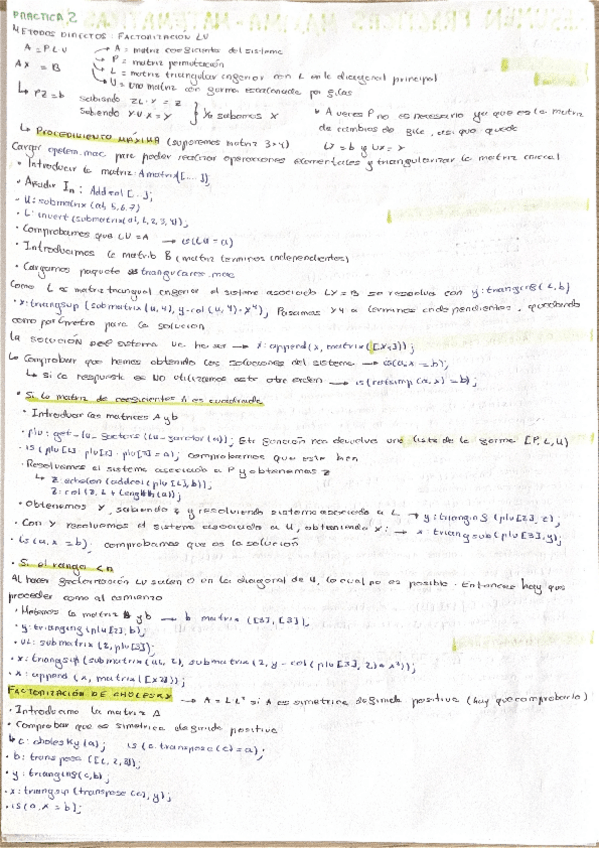 PRACTICA 2
METODOS DIRECTOS: FACTORIZACION LU
A = P L U → A = matriz coeficiente del sistema
AX = B → P = matriz permutación
→ L = matriz triangular inferior con 1 en la diagonal principal
→ U = una matriz con forma escalonada por filas
↳ PZ = b
Sabiendo Z L·Y = Z
Sabiendo Y UX = Y } Ya sabemos X
* A veces P no es necesario ya que es la matriz de cambios de fila, asi que queda
LY = b y UX = Y
↳ PROCEDIMIENTO MÁXIMA (suponemos matriz 3x4)
Cargar para poder realizar operaciones elementales y triangularizar la matriz inicial
• Introducir la matriz: A matrix([...]);
• Añadir In: Addcol [...];
• U: submatrix (a1, 5, 6, 7)
• L: invert (submatrix(a1, 1, 2, 3, 4));
• Comprobamos que LU = A → is(l.u = a)
• Introducimos la matrib B (matriz terminos independientes)
• Cargamos paquete triangulares.mac
Como L es matriz triangual inferior el sistema asociado LY = B se resuelve con y: trianginf(L, b)
• x: triangsup (submatrix (u, 4), y-col (u, 4)*x4), Pasamos x4 a terminos independientes, quedando
como parámetro para la solucion
La SOLUCION DEL sistema → x: append(x, matrix([x4]));
↳ Comprobar que hemos obtenido las soluciones del sistema → is(a.x = b);
↳ si la respuesta es NO utilizamos este otro orden → is(ratsimp(a.x) = b);
• Si la matriz de coeficientes A es cuadrada
• Introducir las matrices A y b
• plu: get_lu_factors (lu_factor(a)); Esta función nos devuelve una lista de la forma [P, L, U]
• is (plu[1]. plu[2]. plu[3] = a); comprobamos que este bien
• Resolvemos el sistema asociado a P y obtenemos Z
↳ z: echelon (addcol (plu[1], b));
z: col (z, 1 + length(a));
• Obtenemos Y, sabiendo z y resolviendo sistema asociado a L → y: trianginf (plu[2], z);
• Con Y resolvemos el sistema asociado a U, obteniendo x: → x: triangsub (plu[3], y);
• is(a.x = b); comprobamos que es la solución
• Si el rango < n
Al hacer factorización LU salen 0 en la diagonal de U, lo cual no es posible. Entonces hay que
proceder como al comienzo
• Metemos la matriz A y b → b matrix ([3], [3]),
• y: trianginf (plu[2], b);
• submatrix (2, plu[3]);
• x: triangsup (submatrix (u1, 2), submatrix (2, y - col (plu[3], 2)*x2));
• x: append (x, matrix([x2]));
FACTORIZACIÓN DE CHOLESKY → A = LLᵗ si A es simetrica definida positiva (hay que comprobarlo)
• Introducimo la matriz A
• Comprobar que es simetrica definida positiva
↳ c: cholesky (a); is (c.transpose(c) = a);
• b: transpose ([1, 2, 2]);
• y: trianginf(c,b);
• x: triangsup (transpose (c), y);
• is(a.x = b);